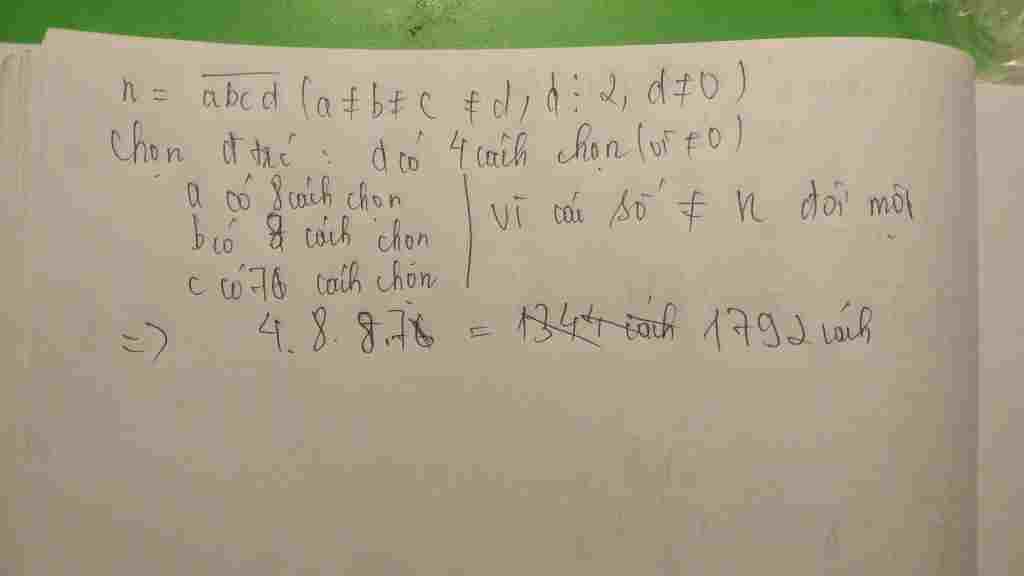 n = abcd (a ≠ b ≠ c ≠ d, d ⋮ 2, d ≠ 0)
Chọn d trước: d có 4 cách chọn (vì ≠ 0)
a có 8 cách chọn
b có 8 cách chọn
c có 7 cách chọn
vì các số ≠ n đôi một
=> 4. 8. 8. 7 = 1344 cách 1792 cách